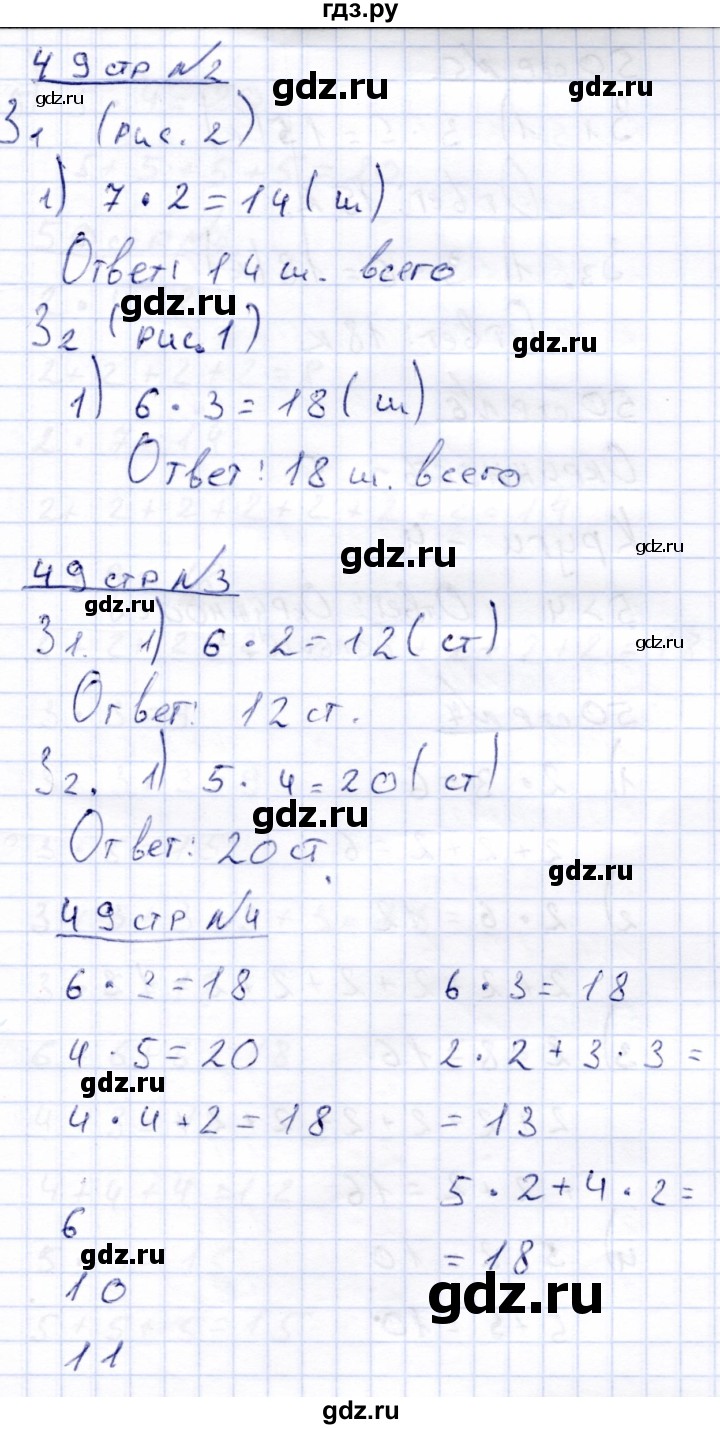 гдз.ру
49 стр №2
gdz.ru
gdz.ru
gdz.ru
З1 (рис. 2)
1) 7 · 2 = 14 (ш)
gdz.ru
Ответ: 14 ш. всего
gdz.ru
З2 (рис. 1)
gdz.ru
1) 6 · 3 = 18 (ш)
Ответ: 18 ш. всего
gdz.ru
gdz.ru
49 стр №3
gdz.ru
З1. 1) 6 · 2 = 12 (ст)
gdz.ru
Ответ: 12 ст.
З2. 1) 5 · 4 = 20 (ст)
gdz.ru
Ответ: 20 ст.
gdz.ru
49 стр №4
6 · 3 = 18
4 · 5 = 20
gdz.ru
4 · 4 + 2 = 18
6
gdz.ru
10
11
6 · 3 = 18
2 · 2 + 3 · 3 =
= 13
5 · 2 + 4 · 2 =
= 18
gdz.ru
gdz.ru